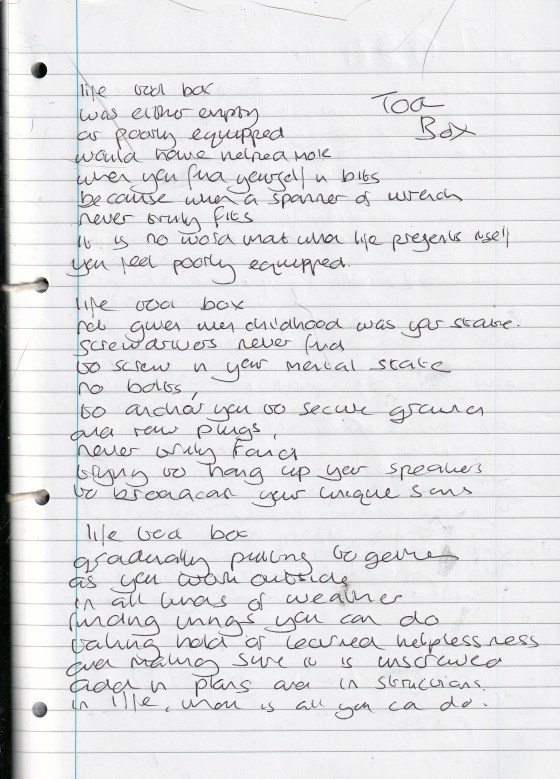 Tool
Box
life tool box
was either empty
or poorly equipped
would have helped more
when you find yourself in bits
because when a spanner or wrench
never truly fits
it is no word that when life presents itself
you feel poorly equipped.
life tool box
not given when childhood was your state.
screwdrivers never find
to screw in your mental state
no bolts,
to anchor you to secure ground
and raw plugs,
never truly found
trying to hang up your speakers
to broadcast your unique sound
life tool box
gradually putting together
as you work outside
in all kinds of weather
finding things you can do
taking hold of learned helplessness
and making sure it is unscrewed
add in plans and instructions.
in life, that is all you can do.